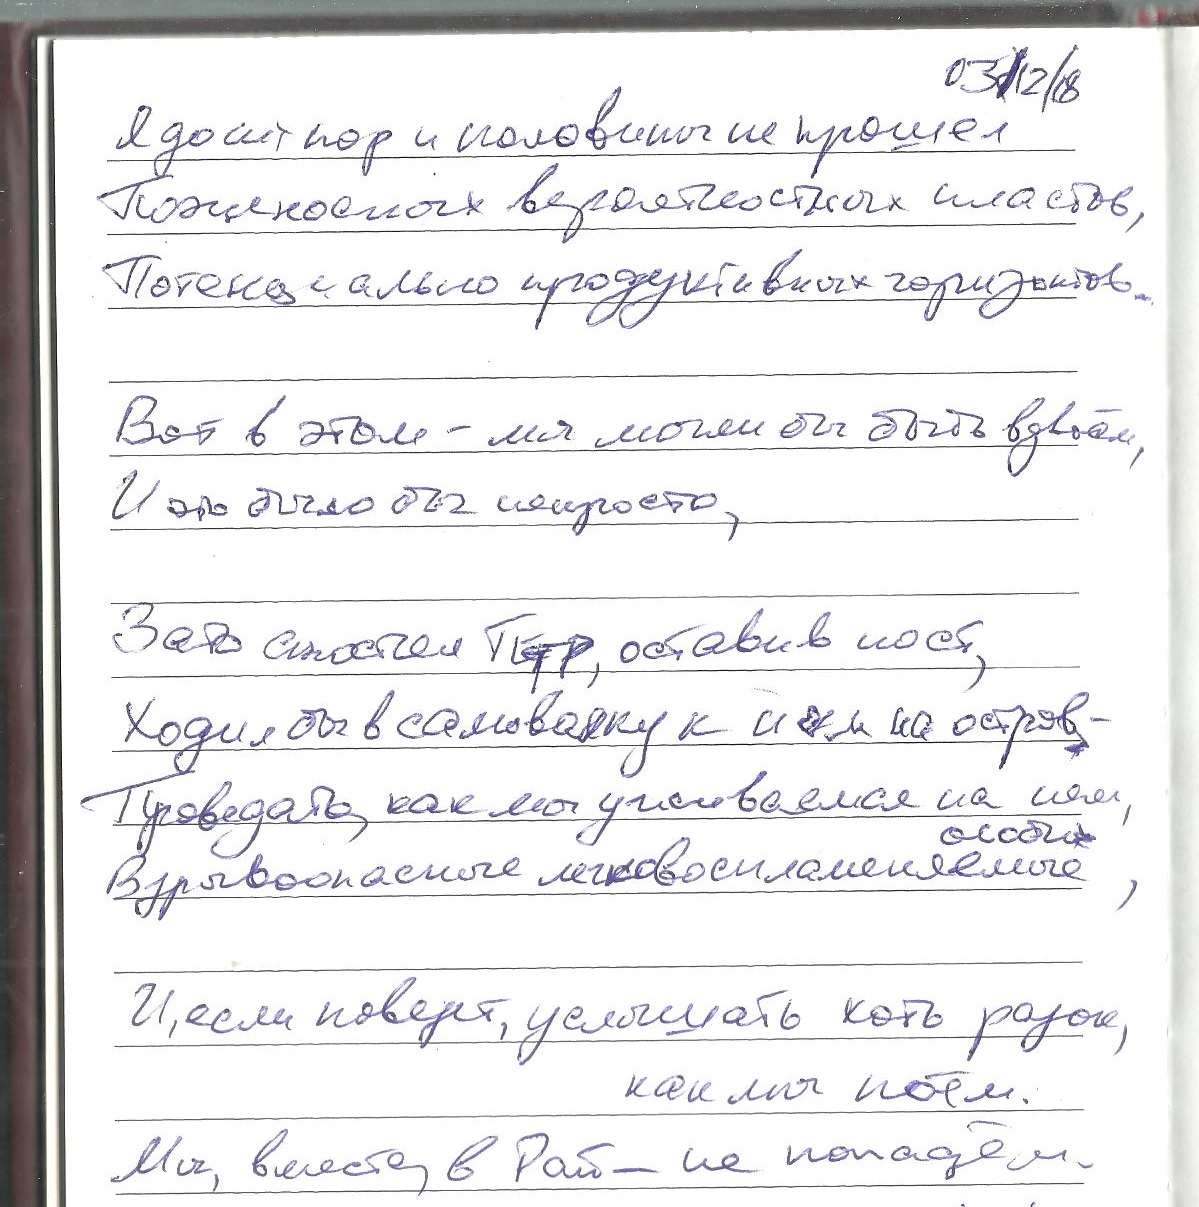 03/12/18
Я до сих пор и половины не прошел
Поженосных вероятностных пластов,
Потенциально продуктивных горизонтов...
Вот в этом - мы могли бы быть вдвоём,
И это было бы непросто,
Зато апостол Пётр, оставив пост,
Ходил бы в самоволку к нам на остров -
Проведать, как мы уживаемся на нём,
особи
Взрывоопасные легковоспламеняемые ,
И, если повезет, услышать хоть разок,
как мы поём.
Мы, вместе, в Рай - не попадём.